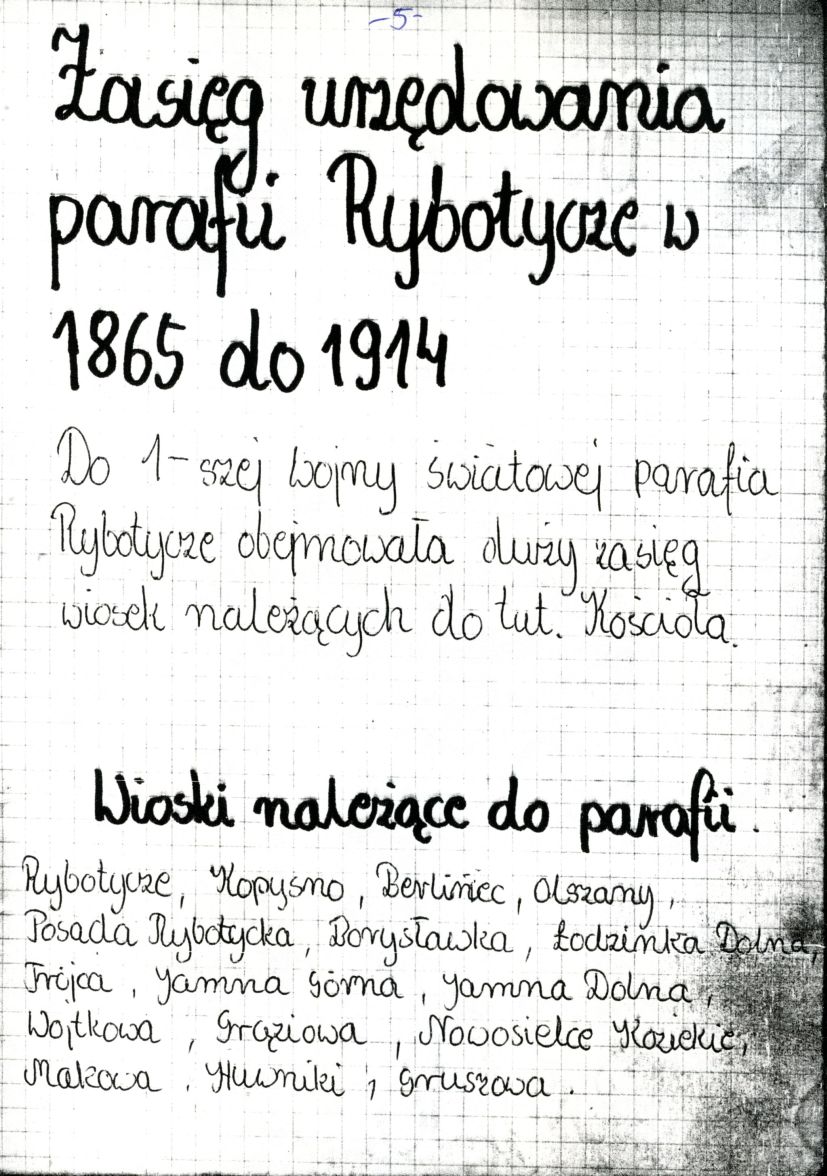 -5-
Zasięg urzędowania
parafii Rybotycze w
1865 do 1914
Do 1-szej wojny światowej parafia
Rybotycze obejmowała duży zasięg
wiosek należących do tut. Kościoła.
Wioski należące do parafii.
Rybotycze, Kopyśno, Berliniec, Olszany,
Posada Rybotycka, Borysławka, Łodzinka Dolna,
Trójca, Jamna Górna, Jamna Dolna,
Wojtkowa, Grąziowa, Nowosielce Kozickie,
Makowa, Huwniki, Gruszowa.